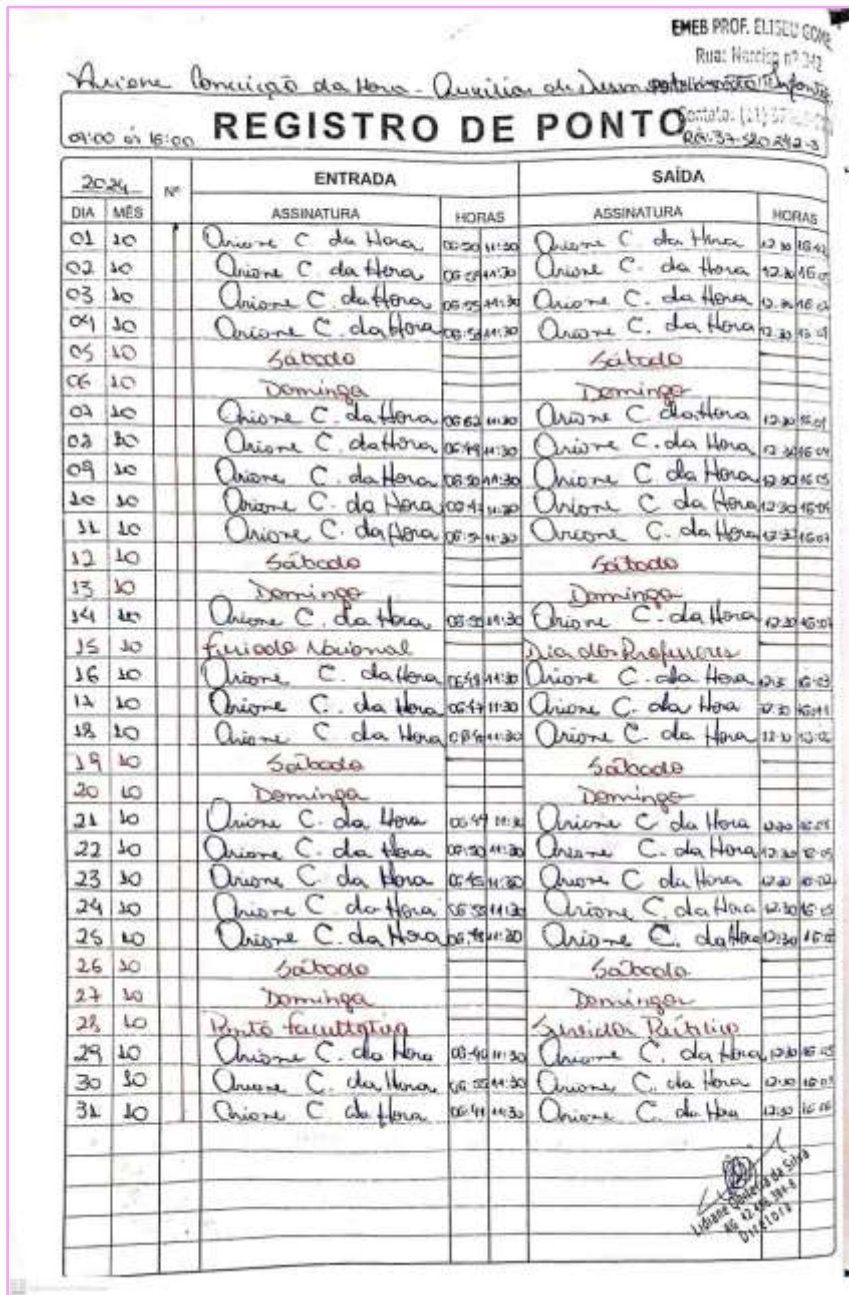 EMEB PROF. ELISEU GOME
Rua: Narciso nº 342
Arione Conceição da Hora - Auxiliar de Desenvolvimento Infantil
Contato: (11)
07:00 às 16:00 REGISTRO DE PONTO RG: 37-520242-3
2024 Nº ENTRADA SAÍDA
DIA MÊS ASSINATURA HORAS ASSINATURA HORAS
01 10 Arione C. da Hora 06:50 11:30 Arione C. da Hora 12:30
02 10 Arione C. da Hora 11:30 Arione C. da Hora 12:30
03 10 Arione C. da Hora 06:55 11:30 Arione C. da Hora 12:30
04 10 Arione C. da Hora 11:30 Arione C. da Hora 12:30
05 10 Sábado Sábado
06 10 Domingo Domingo
07 10 Arione C. da Hora 11:30 Arione C. da Hora 12:30
08 10 Arione C. da Hora 06:49 11:30 Arione C. da Hora 12:30
09 10 Arione C. da Hora 06:50 11:30 Arione C. da Hora 12:30 16:05
10 10 Arione C. da Hora 11:30 Arione C. da Hora 12:30
11 10 Arione C. da Hora 11:30 Arione C. da Hora 12:30
12 10 Sábado Sábado
13 10 Domingo Domingo
14 10 Arione C. da Hora 06:50 11:30 Arione C. da Hora 12:30
15 10 Feriado Nacional Dia dos Professores
16 10 Arione C. da Hora 06:49 11:30 Arione C. da Hora 16:03
17 10 Arione C. da Hora 06:47 11:30 Arione C. da Hora 12:30
18 10 Arione C. da Hora 11:30 Arione C. da Hora
19 10 Sábado Sábado
20 10 Domingo Domingo
21 10 Arione C. da Hora 06:49 11:30 Arione C. da Hora 12:30
22 10 Arione C. da Hora 06:50 11:30 Arione C. da Hora 12:30
23 10 Arione C. da Hora 06:45 11:30 Arione C. da Hora 12:30
24 10 Arione C. da Hora 06:55 11:30 Arione C. da Hora 12:30
25 10 Arione C. da Hora 11:30 Arione C. da Hora 12:30
26 10 Sábado Sábado
27 10 Domingo Domingo
28 10 Ponto facultativo Servidor Público
29 10 Arione C. da Hora 06:46 11:30 Arione C. da Hora 12:30
30 10 Arione C. da Hora 11:30 Arione C. da Hora 12:30
31 10 Arione C. da Hora 11:30 Arione C. da Hora 12:30
Lidiane da Silva
Diretora